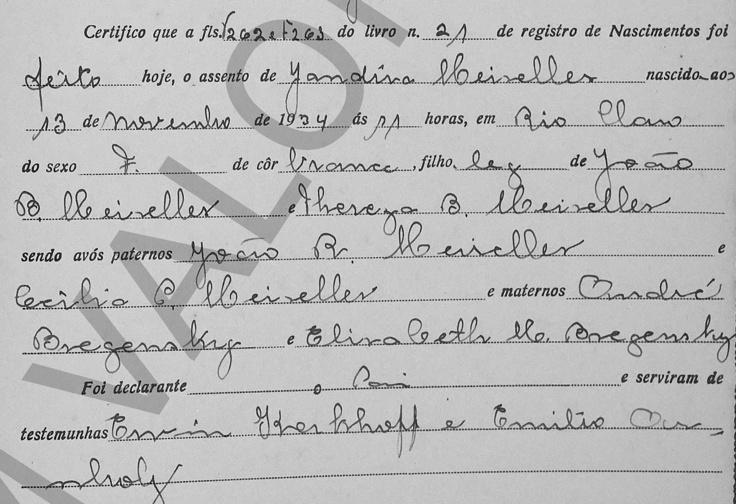 Certifico que a fls. 262 e f 263 do livro n. 21 de registro de Nascimentos foi
feito hoje, o assento de Jandira Meirelles nascido aos
13 de Novembro de 1934 ás 11 horas, em Rio Claro
do sexo F. de côr branca, filho leg de João
B. Meirelles e Thereza B. Meirelles
sendo avós paternos João R. Meirelles e
Cecilia C. Meirelles e maternos André
Bregensky e Elizabeth M. Bregensky
Foi declarante o Pai e serviram de
testemunhas Erwin Kerkhoff e Emilio
VALOR